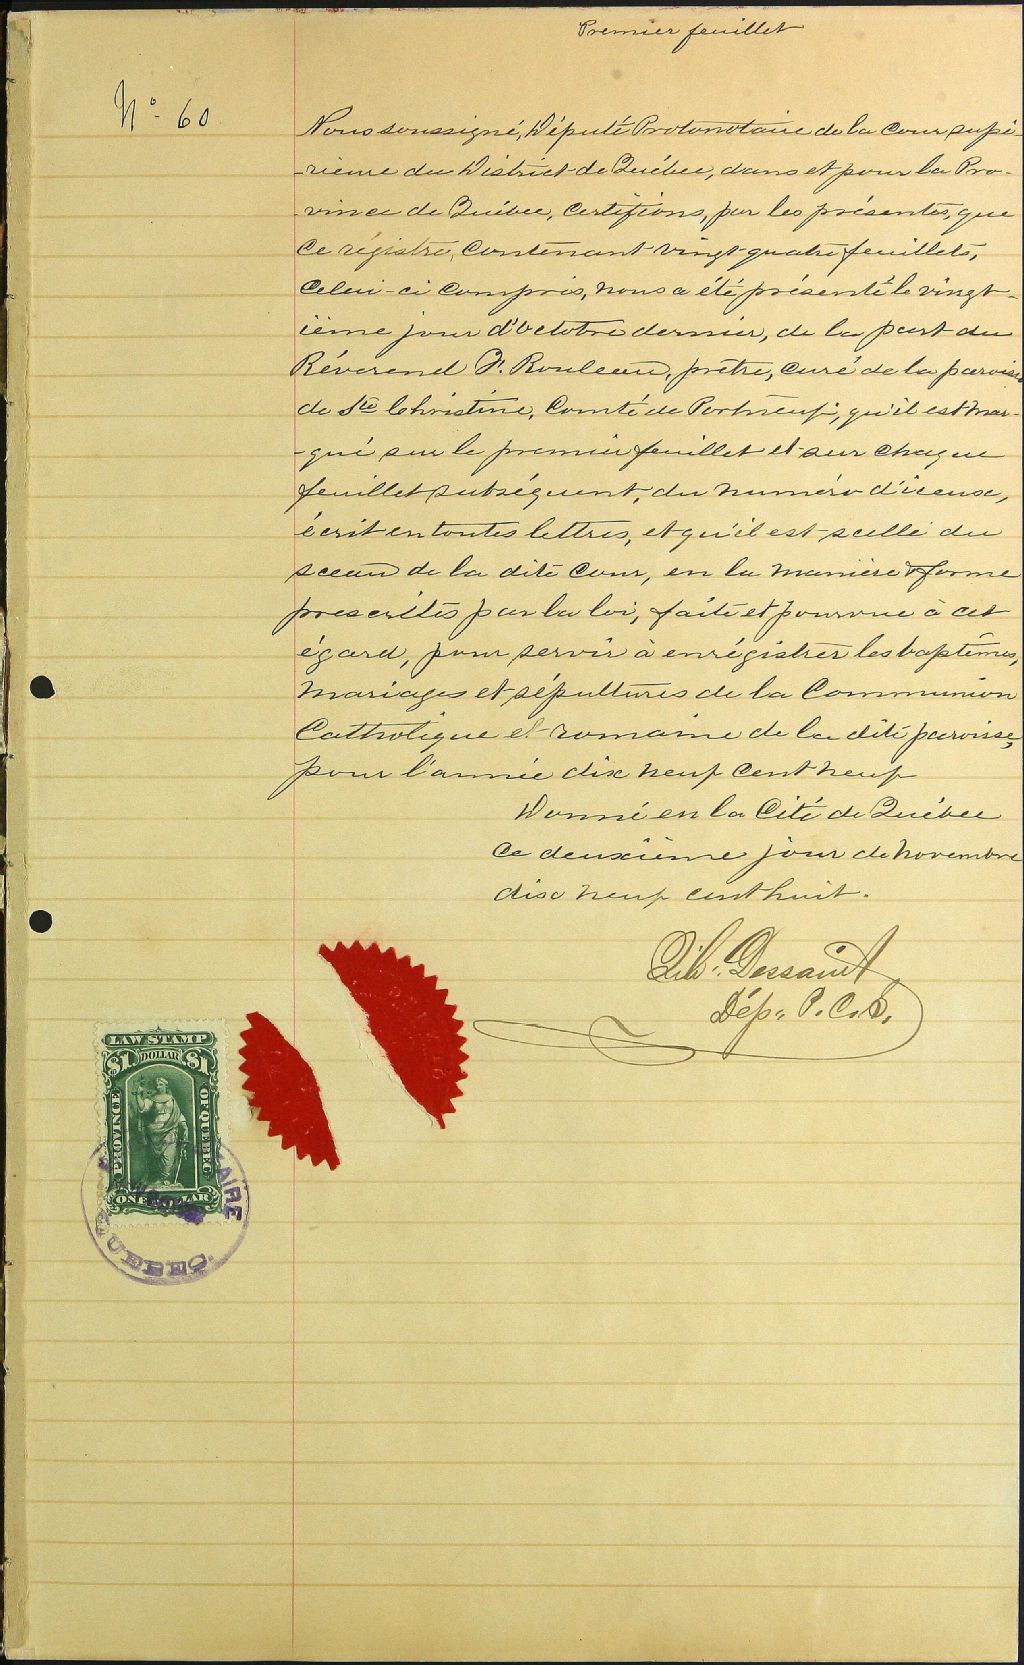 Premier feuillet
No. 60
Nous soussigné, Député Protonotaire de la Cour supé-
-rieure du District de Québec, dans et pour la Pro-
-vince de Québec, certifions, par les présentes, que
ce régistre, contenant vingt quatre feuillets,
celui-ci compris, nous a été présenté le vingt-
ième jour d'octobre dernier, de la part du
Révérend F. Rouleau, prêtre, curé de la paroisse
de Ste Christine, Comté de Portneuf, qu'il est mar-
-qué sur le premier feuillet et sur chaque
feuillet subséquent, du numéro d'iceux,
écrit en toutes lettres, et qu'il est scellé du
sceau de la dite cour, en la manière & forme
prescrites par la loi, faite et pourvue à cet
égard, pour servir à enrégistrer les baptêmes,
mariages et sépultures de la Communion
Catholique et romaine de la dite paroisse,
pour l'année dix neuf cent neuf
Donné en la Cité de Québec
ce deuxième jour de Novembre
dix neuf cent huit.
Dessaint
Dép. P. C. S.
LAW STAMP
$1 DOLLAR $1
PROVINCE OF QUEBEC
ONE DOLLAR
QUEBEC.